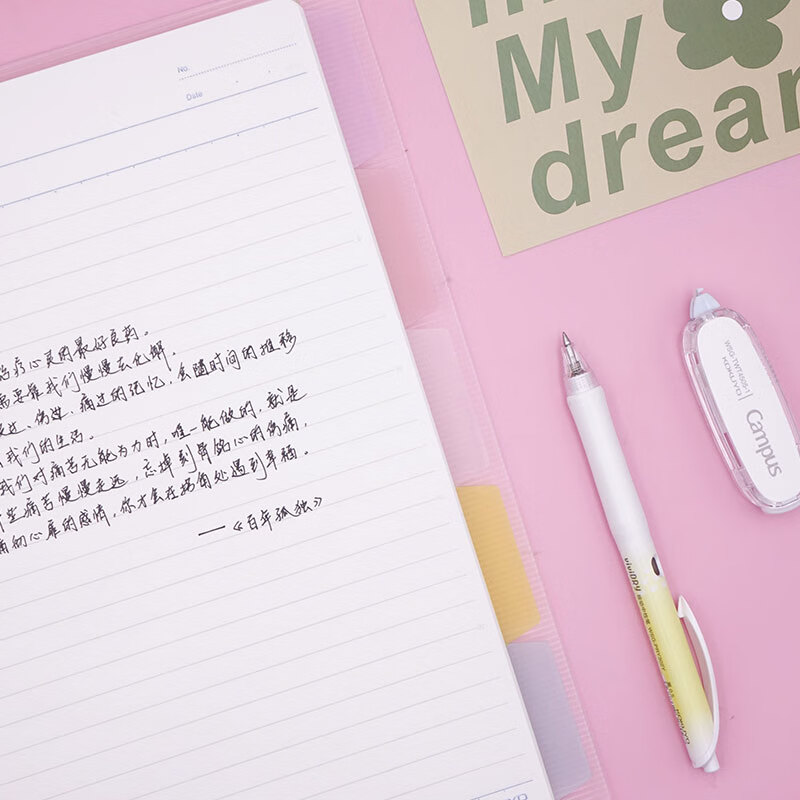 No.
Date
治疗心灵的最好良药。
需要靠我们慢慢去化解。
过、伤过、痛过的记忆,会随时间的推移
我们的生活。
我们对痛苦无能为力时,唯一能做的,就是
痛苦慢慢走远,忘掉刻骨铭心的伤痛,
痛彻心扉的感情,你才会在拐角处遇到幸福。
——《百年孤独》
My
dream
WSG-TWT4505-1
KOKUYO
Campus
ViviDRY
KOKUYO